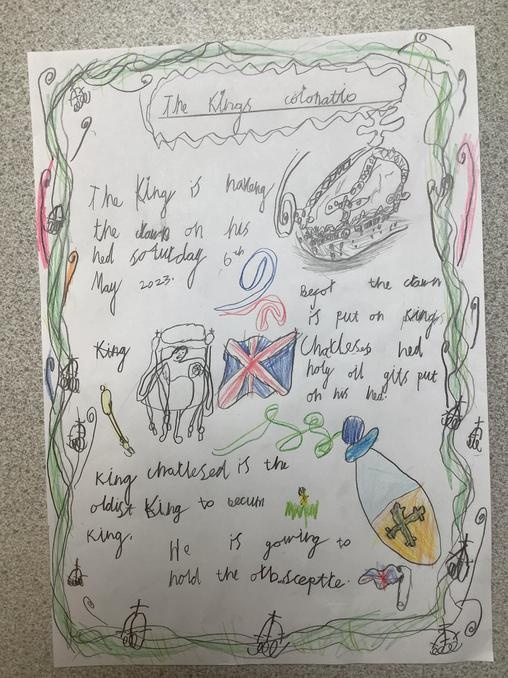 The Kings colonatio
The King is having
the clawn on his
hed soturday 6th
May 2023.
Befot the clawn
is put on Kings
Chatleses hed
holy oll gits put
on his hed.
King
King chatlesed is the
oldist King to becum
King.
He is gowing to
hold the olbsceptte.